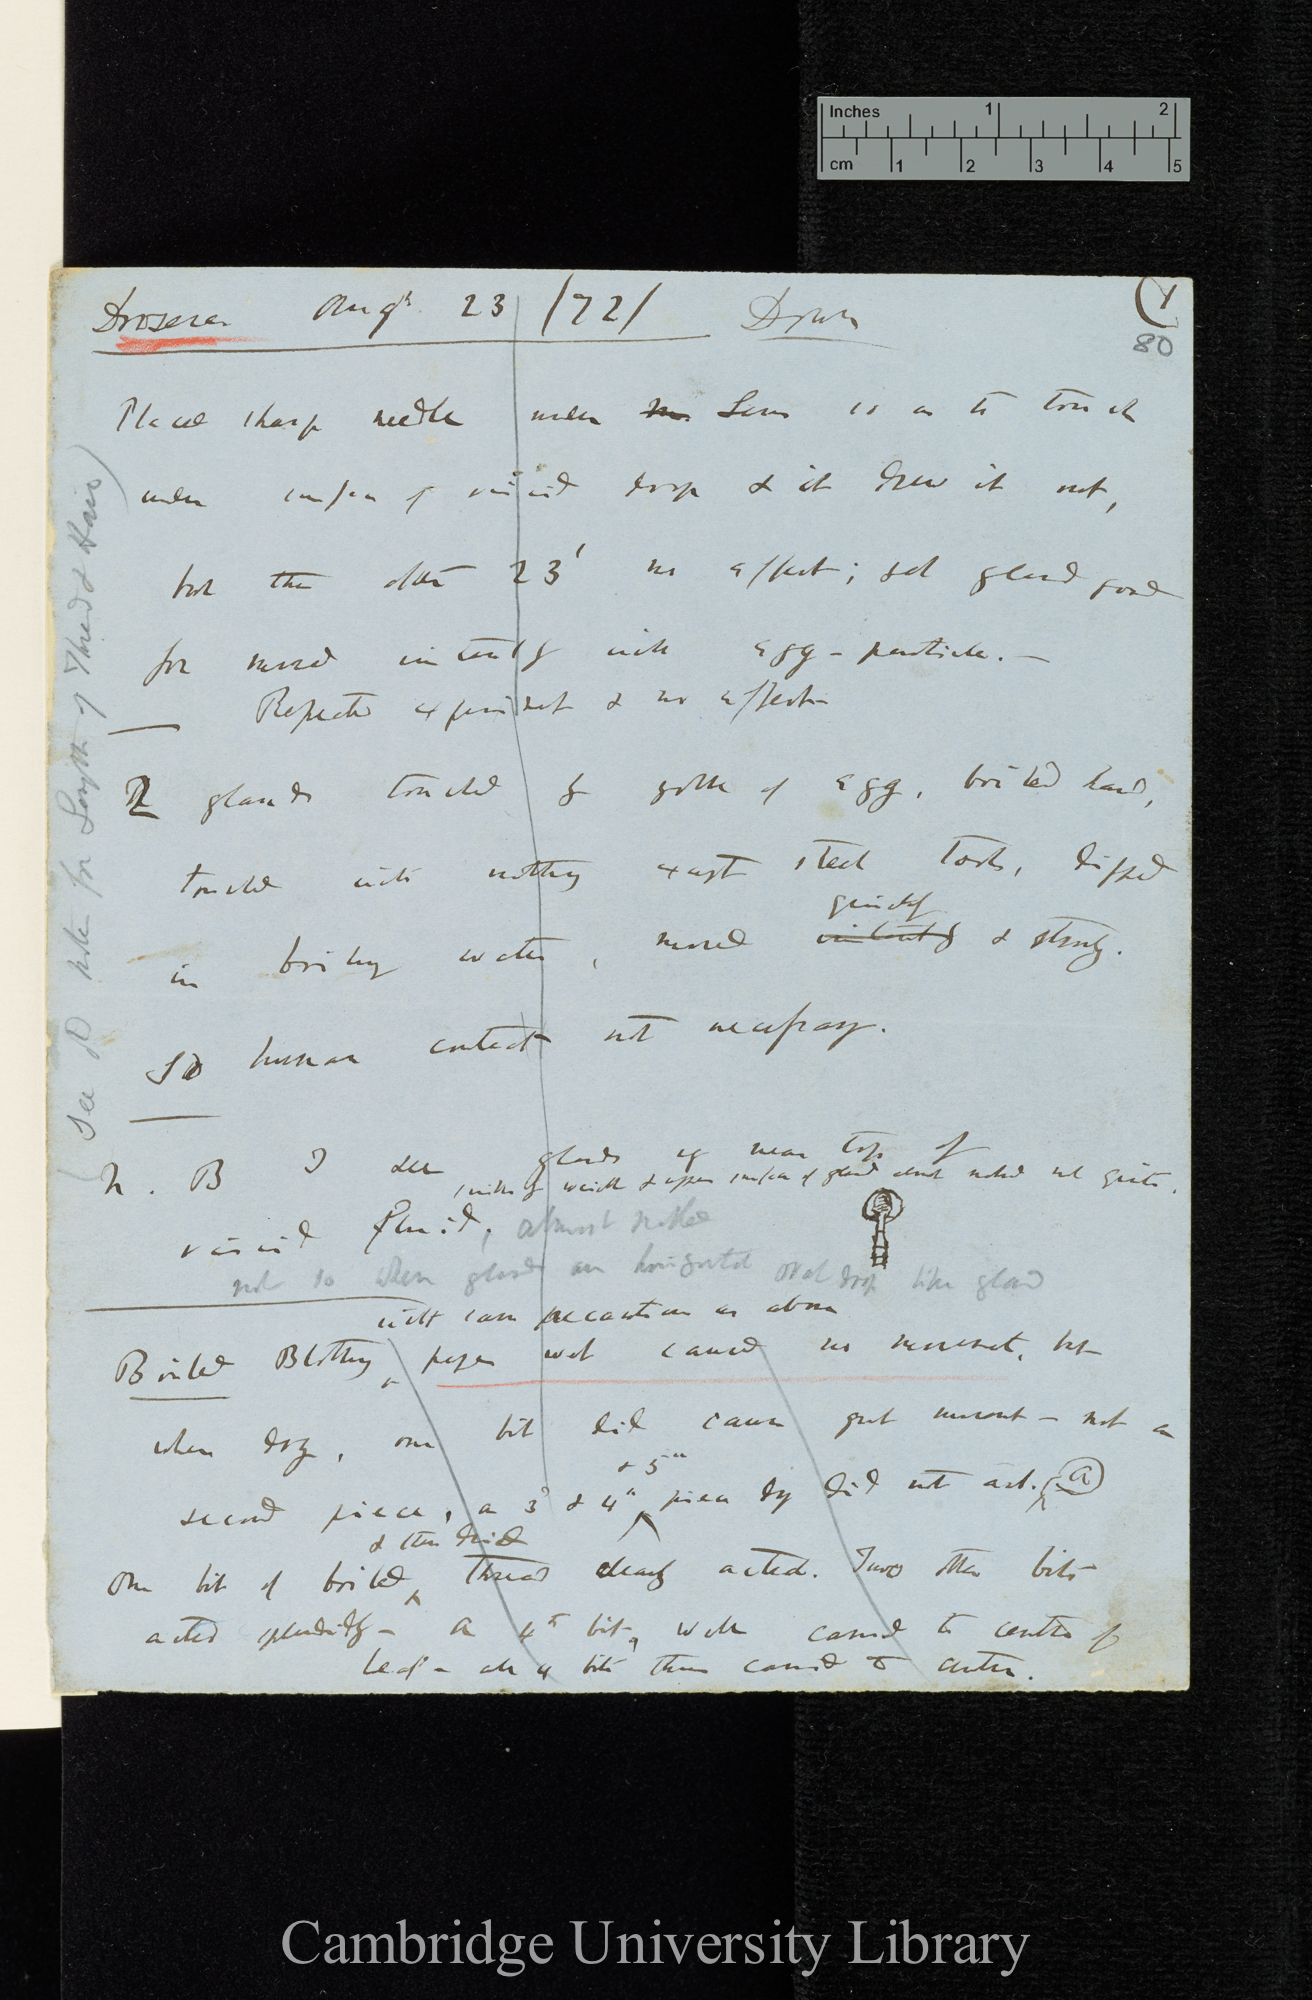 Inches 1 2
cm 1 2 3 4 5
Drosera Aug. 23 /72/ Down
(1
80
Placed sharp needle under Lens so as to touch
under surface of viscid drop & it drew it out,
but the other 23' no effect; yet gland good
for moved instantly with egg-particle. —
Repeated experiment & no effect
2 glands touched by yolk of egg, boiled hard,
touched with nothing except steel tools, dipped
quickly
in boiling water, moved instantly & strongly.
So human contact not necessary.
N. B I see glands near top of
viscid fluid, almost naked
not so when glands are horizontal oval drop like gland
with same precaution as above
Boiled Blotting paper wet caused no movement, but
when dry, one bit did cause great movement — not a
& 5th
second piece, a 3d & 4th piece dry did not act. (a)
& then dried
One bit of boiled thread clearly acted. Two other bits
acted splendidly — A 4th bit, well carried to centre of
leaf — all 4 bits thus carried to centre.
(See D note for Length of Thread & Hair)
Cambridge University Library